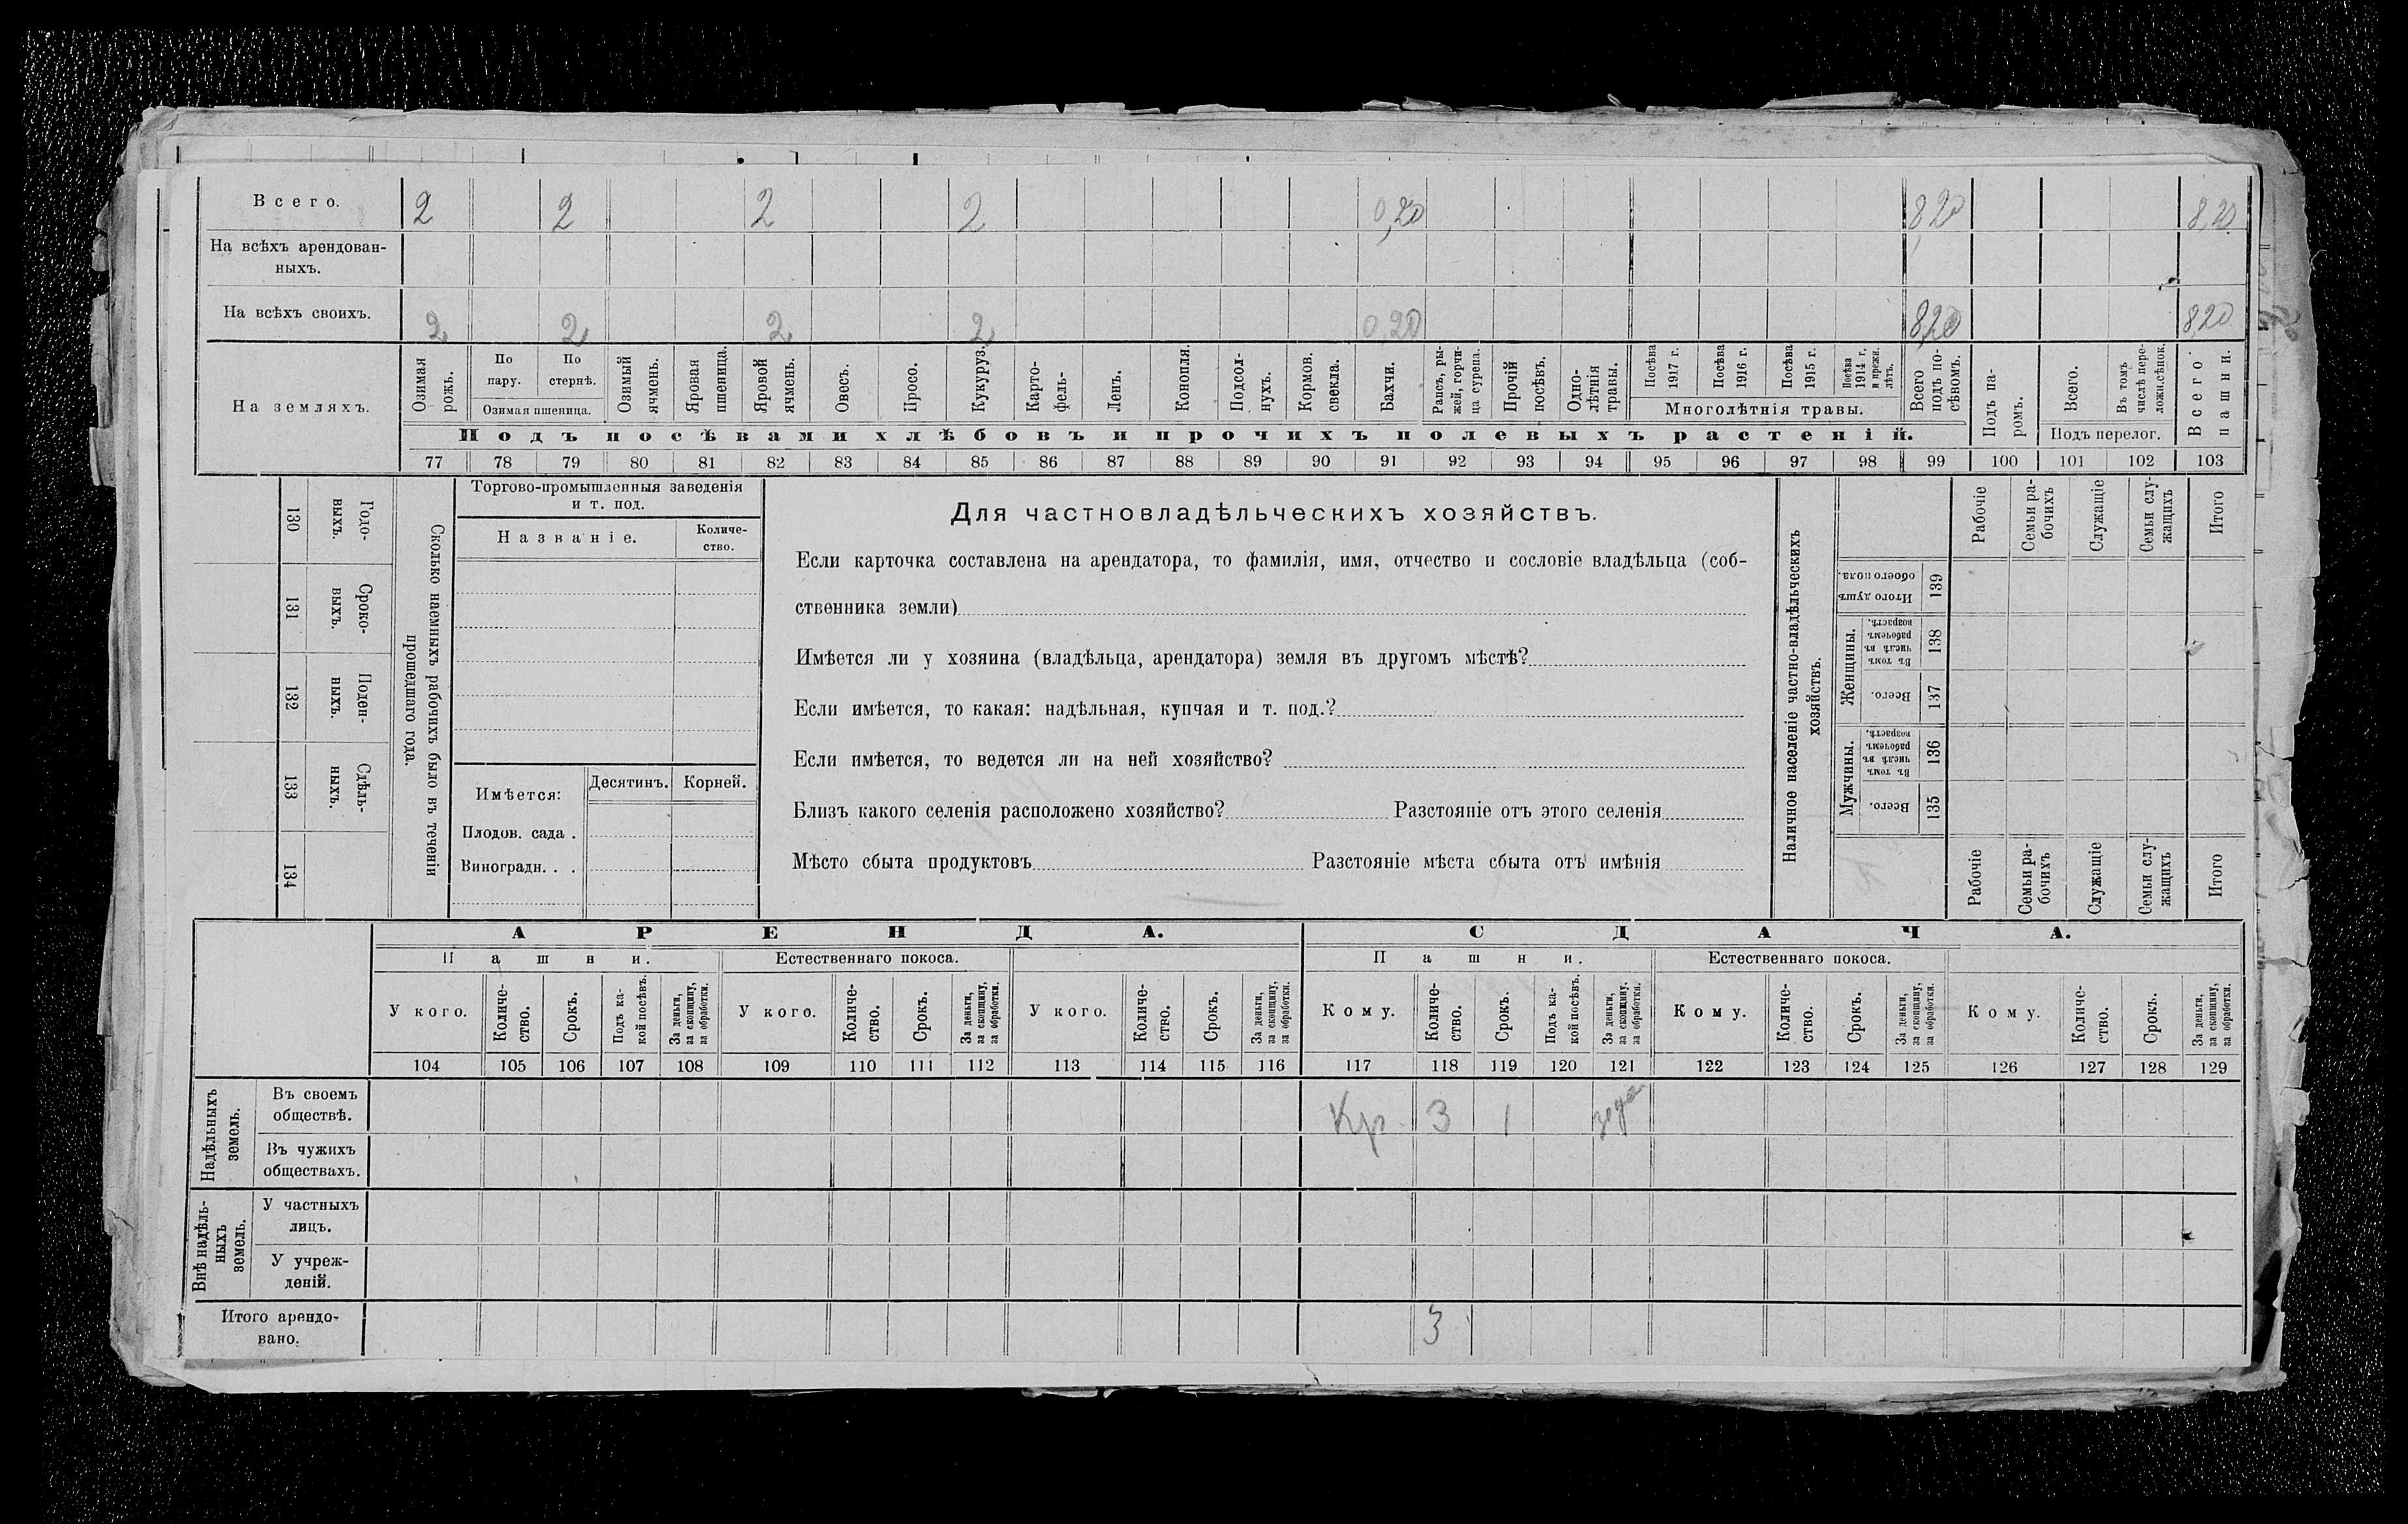 Всего. 2 2 2 2 0,20 8,20 8,20
На всѣхъ арендован-
ныхъ.
На всѣхъ своихъ. 2 2 2 2 0,20 8,20 8,20
На земляхъ.
Озимая рожь.
По пару.
По стернѣ.
Озимая пшеница.
Озимый ячмень.
Яровая пшеница.
Яровой ячмень.
Овесъ.
Просо.
Кукуруз.
Карто-
фель-
Ленъ.
Конопля.
Подсол-
нухъ.
Кормов. свекла.
Бахчи.
Рапсъ, ры-
жей, горчи-
ца сурепа.
Прочій посѣвъ.
Одно-
лѣтнія травы.
Посѣва 1917 г.
Посѣва 1916 г.
Посѣва 1915 г.
Посѣва 1914 г. и прежн. лѣтъ.
Многолѣтнія травы.
Всего подъ по-
сѣвомъ.
Подъ па-
ромъ.
Всего.
Въ томъ числѣ пере-
ложн.сѣнок.
Подъ перелог.
Всего пашни.
Подъ посѣвами хлѣбовъ и прочихъ полевыхъ растеній.
77 78 79 80 81 82 83 84 85 86 87 88 89 90 91 92 93 94 95 96 97 98 99 100 101 102 103
Годо-
выхъ.
130
Сроко-
выхъ.
131
Поден-
ныхъ.
132
Сдѣль-
ныхъ.
133
134
Сколько наемныхъ рабочихъ было въ теченіи
прошедшаго года.
Торгово-промышленныя заведенія
и т. под.
Названіе.
Количе-
ство.
Имѣется:
Десятинъ.
Корней.
Плодов. сада .
Виноградн. . .
Для частновладѣльческихъ хозяйствъ.
Если карточка составлена на арендатора, то фамилія, имя, отчество и сословіе владѣльца (соб-
ственника земли)
Имѣется ли у хозяина (владѣльца, арендатора) земля въ другомъ мѣстѣ?
Если имѣется, то какая: надѣльная, купчая и т. под.?
Если имѣется, то ведется ли на ней хозяйство?
Близъ какого селенія расположено хозяйство? Разстояніе отъ этого селенія
Мѣсто сбыта продуктовъ Разстояніе мѣста сбыта отъ имѣнія
Наличное населеніе частно-владѣльческихъ
хозяйствъ.
Рабочіе
Семьи ра-
бочихъ
Служащіе
Семьи слу-
жащихъ
Итого
Итого душъ
обоего пола.
139
Женщины.
Въ томъ числѣ въ рабочемъ возрастѣ.
138
Всего.
137
Мужчины.
Въ томъ числѣ въ рабочемъ возрастѣ.
136
Всего.
135
Рабочіе
Семьи ра-
бочихъ
Служащіе
Семьи слу-
жащихъ
Итого
АРЕНДА.
СДАЧА.
Пашни.
Естественнаго покоса.
Пашни.
Естественнаго покоса.
У кого.
Количе-
ство.
Срокъ.
Подъ ка-
кой посѣвъ.
За деньги,
за скопщину,
за обработки.
У кого.
Количе-
ство.
Срокъ.
За деньги,
за скопщину,
за обработки.
У кого.
Количе-
ство.
Срокъ.
За деньги,
за скопщину,
за обработки.
Кому.
Количе-
ство.
Срокъ.
Подъ ка-
кой посѣвъ.
За деньги,
за скопщину,
за обработки.
Кому.
Количе-
ство.
Срокъ.
За деньги,
за скопщину,
за обработки.
Кому.
Количе-
ство.
Срокъ.
За деньги,
за скопщину,
за обработки.
104 105 106 107 108 109 110 111 112 113 114 115 116 117 118 119 120 121 122 123 124 125 126 127 128 129
Надѣльныхъ
земель.
Въ своемъ
обществѣ.
Кр 3 1
Въ чужихъ
обществахъ.
Внѣ надѣль-
ныхъ
земель.
У частныхъ
лицъ.
У учреж-
деній.
Итого арендо-
вано.
3